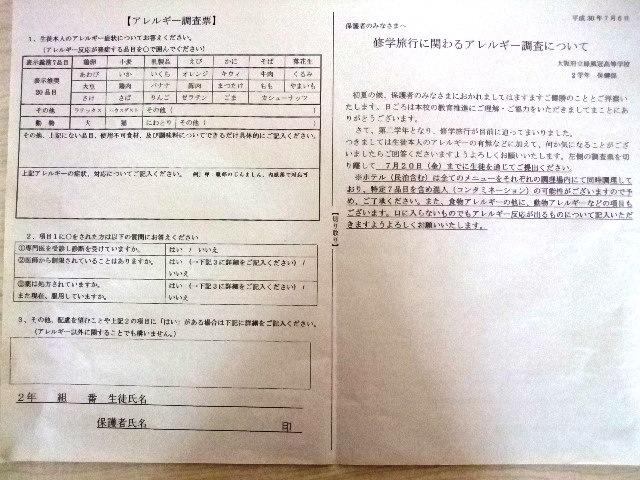 【アレルギー調査票】
1、生徒本人のアレルギー症状についてお答えください。
（アレルギー反応が発症する品目を○で囲んでください）
表示義務7品目 鶏卵 小麦 乳製品 えび かに そば 落花生
表示推奨20品目 あわび いか いくら オレンジ キウィ 牛肉 くるみ
大豆 鶏肉 バナナ 豚肉 まつたけ もも やまいも
さけ さば りんご ゼラチン ごま カシューナッツ
その他 ラテックス ハウスダスト その他（
動物 犬 猫 にわとり その他（
その他、上記にない品目、使用不可食材、及び調味料についてできるだけ具体的にご記入ください。
上記アレルギーの症状、対応についてご記入ください。
2、項目1に○をされた方は以下の質問にお答えください
①専門医を受診し診断を受けていますか。 はい / いいえ
②医師から制限されていることはありますか。 はい （→下記3に詳細をご記入ください） /
いいえ
③薬は処方されていますか。 はい （→下記3に詳細をご記入ください） /
また現在、服用していますか。 いいえ
3、その他、配慮を望むことや上記2の項目に「はい」がある場合は下記に詳細をご記入ください。
（アレルギー以外に関することでも構いません。）
2年 組 番 生徒氏名
保護者氏名 印
【切り取り】
平成30年7月6日
保護者のみなさまへ
修学旅行に関わるアレルギー調査について
大阪府立緑風冠高等学校
2学年 保健部
初夏の候、保護者のみなさまにおかれましてはますますご健勝のこととご拝察い
たします。日ごろは本校の教育推進にご理解・ご協力をいただきましてまことにあ
りがとうございます。
さて、第二学年となり、修学旅行が目前に迫ってまいりました。
つきましては生徒本人のアレルギーの有無などに加えて、何か気になることがござ
いましたらご回答くださいますようよろしくお願いいたします。左側の調査票を切
り離して、7月20日（金）までに生徒を通じてご提出ください。
※ホテル（民泊含む）は全てのメニューをそれぞれの調理場内にて同時調理して
おり、特定7品目を含め混入（コンタミネーション）の可能性がございますので予
め、ご了承ください。また、食物アレルギーの他に、動物アレルギーなどの項目も
ございます。口に入らないものでもアレルギー反応が出るものについて記入いただ
きますようよろしくお願いいたします。